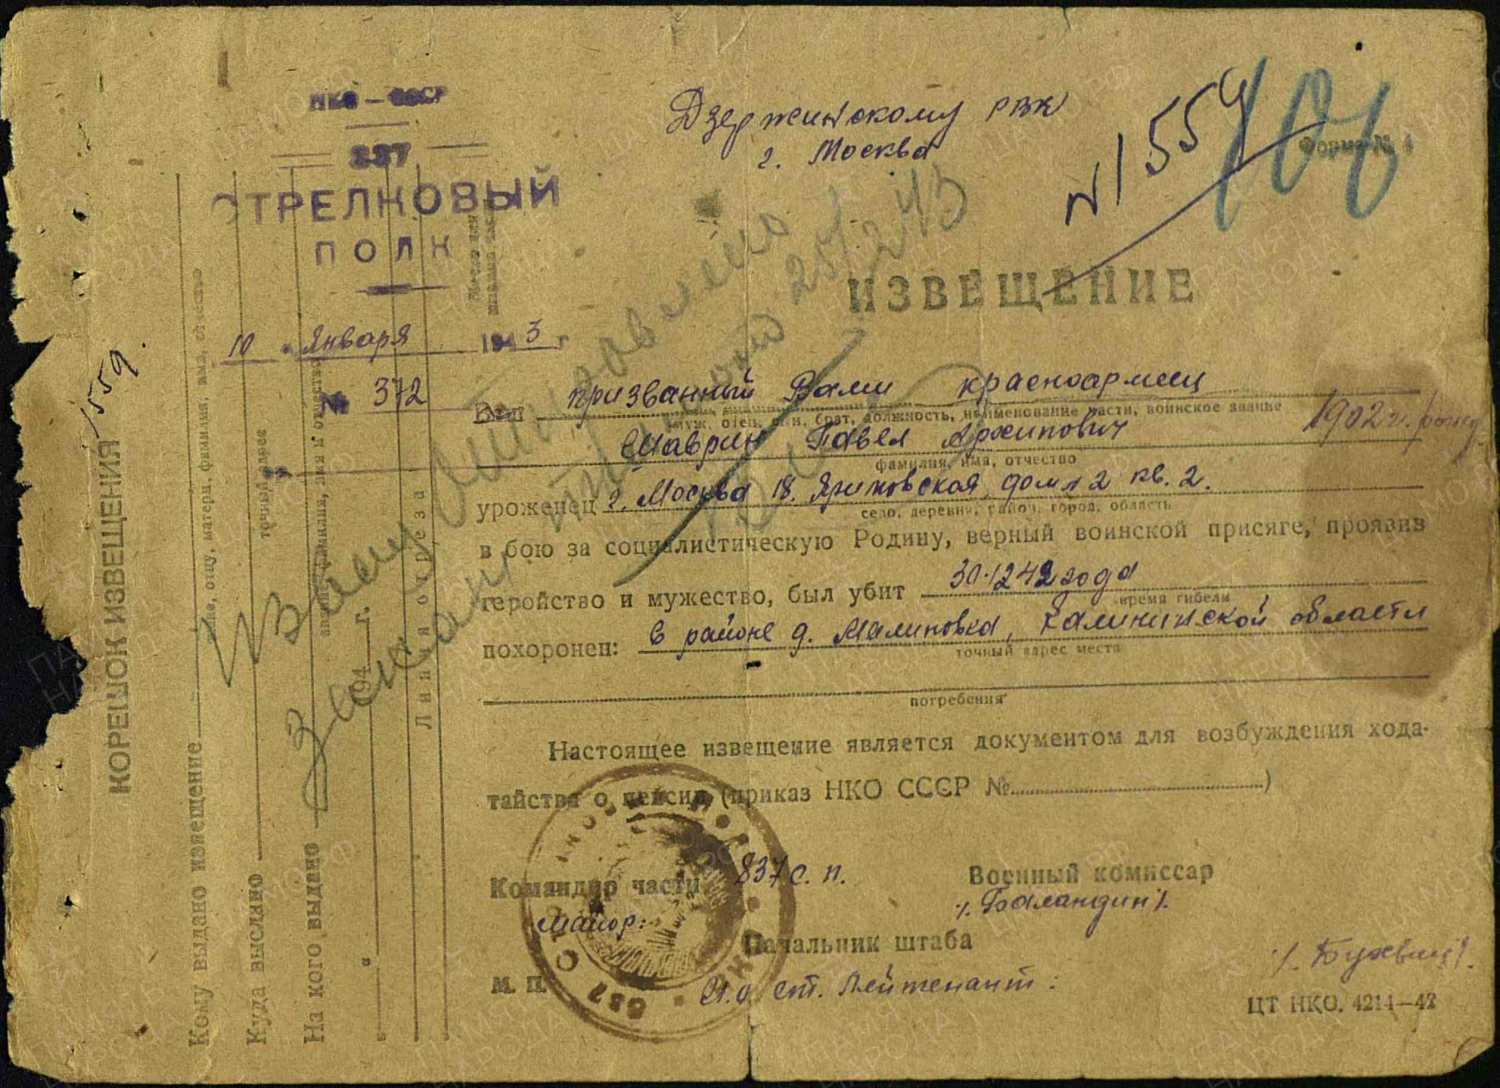 НКО — СССР
837
СТРЕЛКОВЫЙ
ПОЛК
10 " января 1943 г
№ 372
Дзержинскому РВК
г. Москва
N 1559
106
Форма № 4
ИЗВЕЩЕНИЕ
призванный Вами красноармеец
муж, отец, сын, брат, должность, наименование части, воинское звание
Шаврин Павел Архипович 1902 г.
фамилия, имя, отчество
уроженец г. Москва 18. дом 2 кв. 2.
село, деревня, район, город, область
в бою за социалистическую Родину, верный воинской присяге, проявив
геройство и мужество, был убит 30.12 42 года
время гибели
похоронен: в районе д. Малиновка, Калининской области
точный адрес места
погребения
Настоящее извещение является документом для возбуждения хода-
тайства о пенсии (приказ НКО СССР № )
Командир части 837 с. п.
Майор:
Военный комиссар
/. Баландин /.
Начальник штаба
М. П.
И.о ст. Лейтенант:
ЦТ НКО. 4214—42
837
КОРЕШОК ИЗВЕЩЕНИЯ
1559
Кому выдано извещение
жене, отцу, матери, фамилия, имя, отчество
Куда выслано
точный адрес
На кого выдано
звание, фамилия, имя и отчество
" 194 г.
Линия отреза
от 25/2 43
ПАМЯТЬ НАРОДА